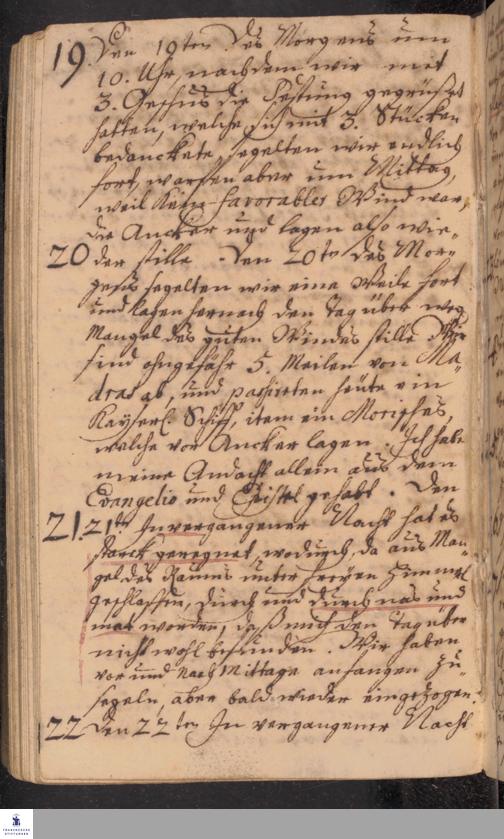 19. Den 19ten des Morgens um
10. Uhr, nachdem wir mit
3. Schuß die Festung gegrüßet
hatten, welche sich mit 3. Stücken
bedanckete, segelten wir endlich
fort, warfen aber um Mittag,
weil kein favorabler Wind war,
die Ancker und lagen also wie-
20 der stille. Den 20ten des Mor-
gens segelten wir eine Weile fort
und lagen hernach den Tag über weg.
Mangel des guten Windes stille. Wir
sind ohngefähr 5. Meilen von Ma-
dras ab, und passirten heute ein
Kayserl. Schiff, item ein
welche vor Ancker lagen. Ich habe
meine Andacht allein aus dem
Evangelio und Epistel gehabt. Den
21. 21ten In vergangener Nacht hat es
starck geregnet, wodurch, da aus Man-
gel des Raums unter freyen Himmel
geschlaffen, durch und durch nas und
mat worden, daß mich den Tag über
nicht wohl befunden. Wir haben
vor und nach Mittage anfangen zu
segeln, aber bald wieder eingezogen.
22 Den 22ten In vergangener Nacht
FRANCKESCHE
STIFTUNGEN